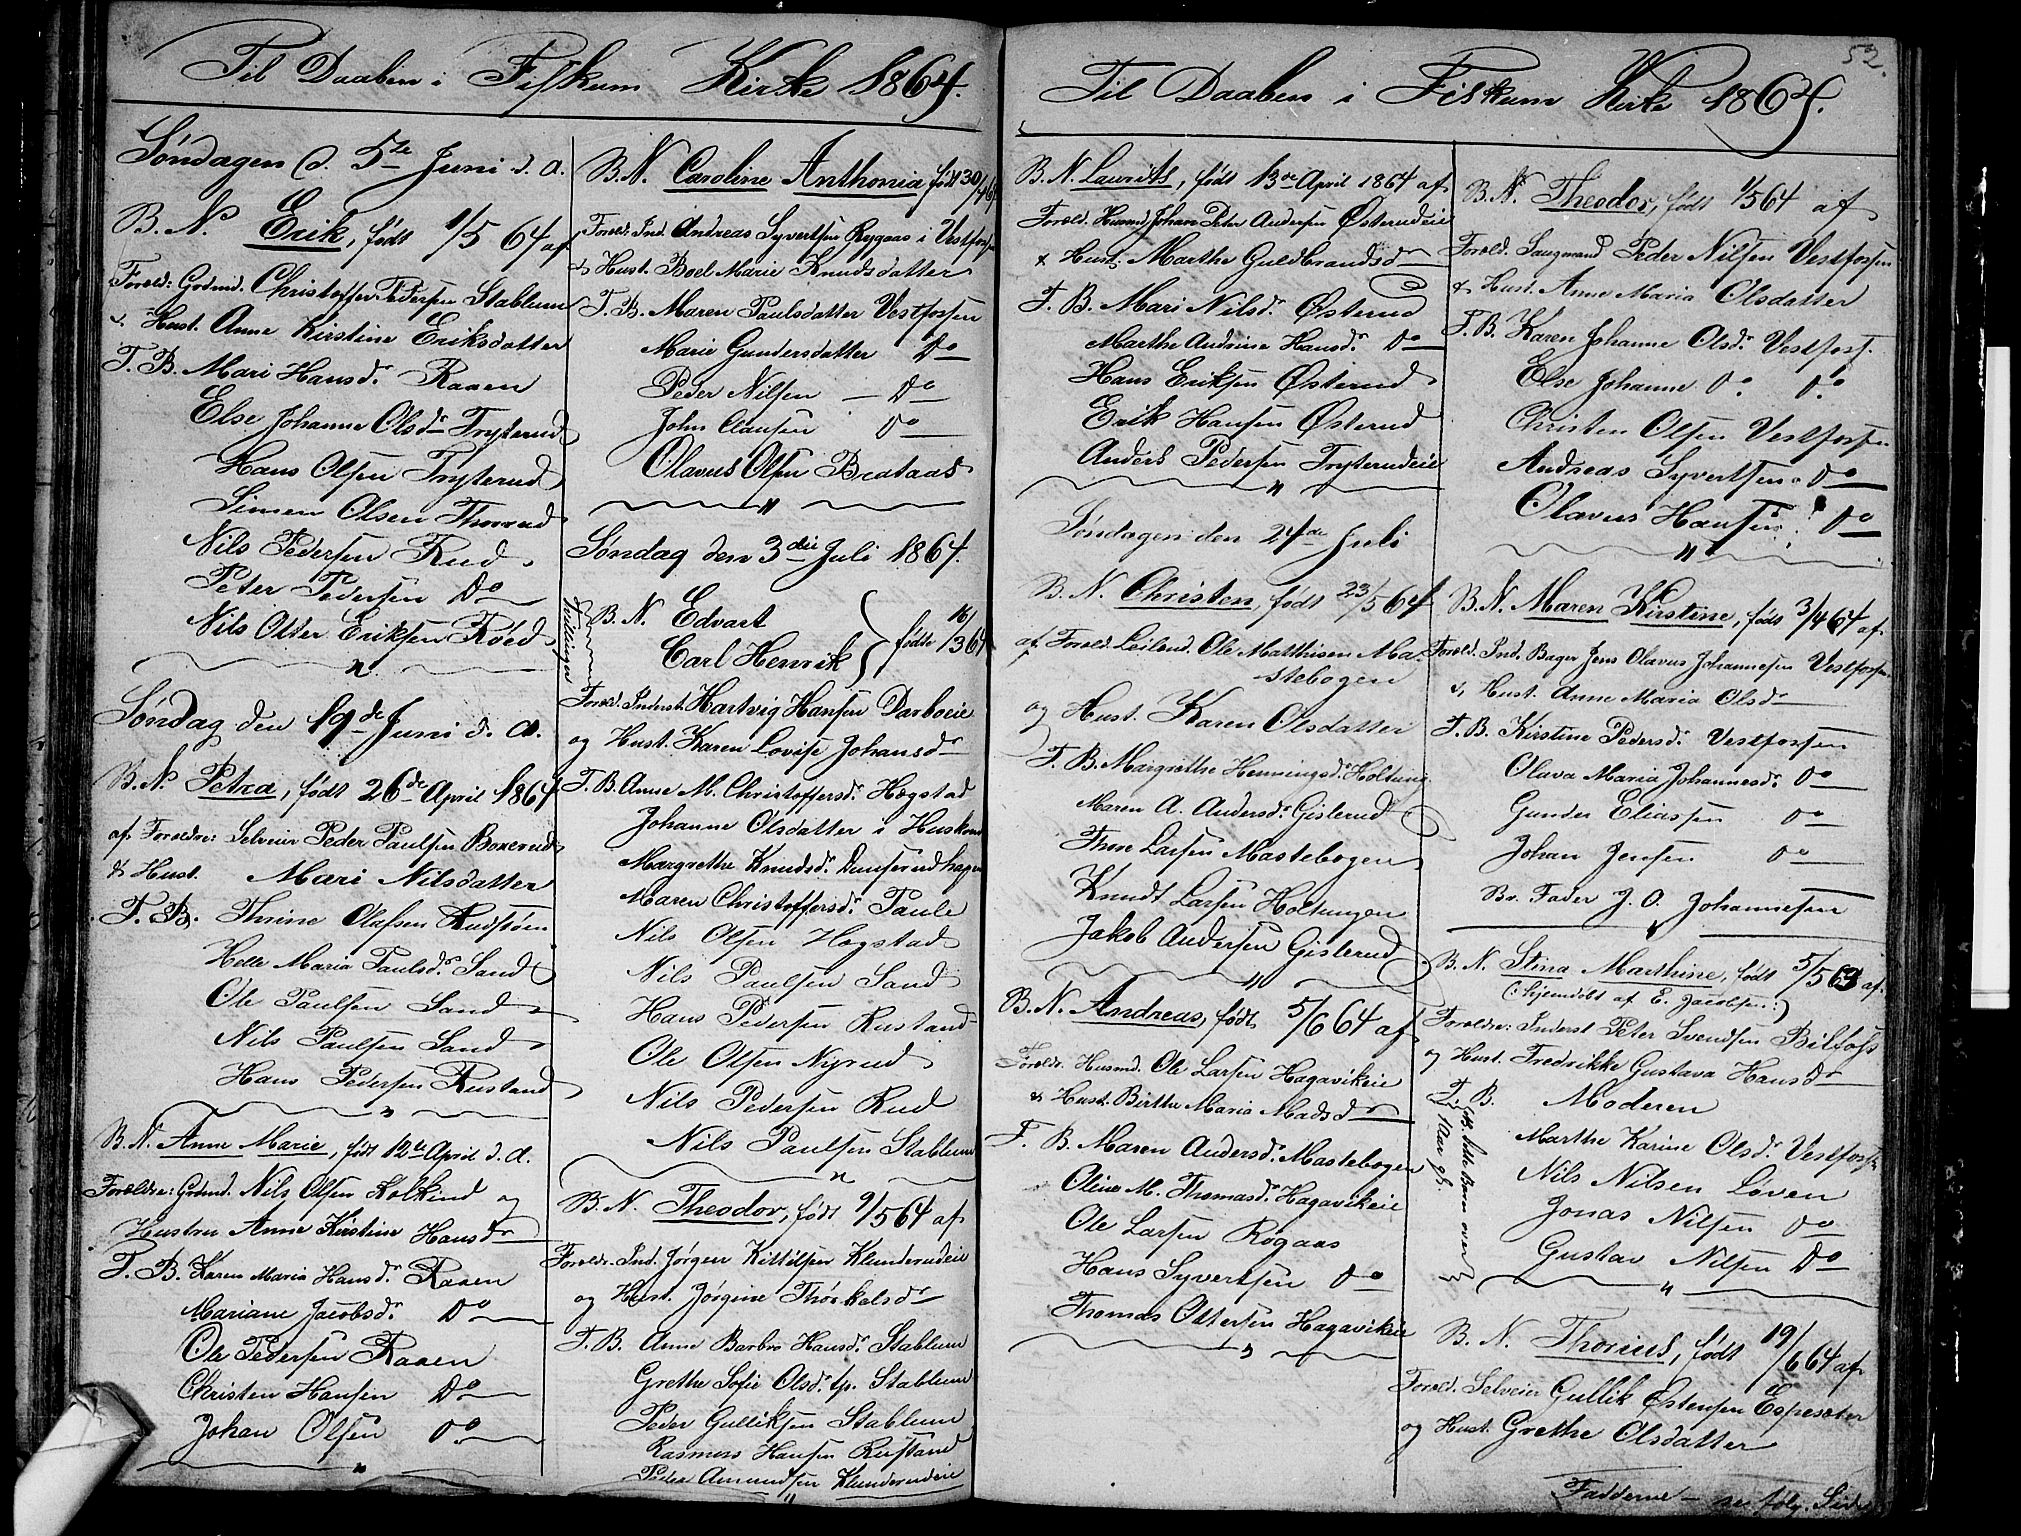 Til Daaben i Fiskum Kirke 1864.
Søndagen d. 5te Juni d. A.
B. N. Erik, født 1/5 64 af
Foræld: Grdmd. Christoffer Pedersen Stablum
& Hust. Anne Kirstine Eriksdatter
T. B. Mari Hansdr. Raaen
Else Johanne Olsdr Tryterud
Hans Olsen Tryterud
Simen Olsen Thorrud
Nils Pedersen Rud
Peter Pedersen Do
Nils Olster Eriksen Røed
Søndag den 19de Juni d. A.
B. N. Petra, født 26de April 1864
af Foreldre: Selveier Peder Paulsen Boxerud
& Hust. Mari Nilsdatter
T. B. Thrine Olafsen Rudsøen
Helle Maria Paulsdr. Sand
Ole Paulsen Sand
Nils Paulsen Sand
Hans Pedersen Rustand
B. N. Anne Marie, født 12te April d. A.
Forældre: Grdmd. Nils Olsen Kolkind og
Hustru Anne Kirstine Hansdr
T. B. Karen Maria Hansdr. Raaen
Mariane Jacobsdr. Do
Ole Pedersen Raaen
Christen Hansen Do
Johan Olsen Do
B. N. Caroline Anthonia født 30/4 64
Foræld. Ind. Andreas Syvertsen Rygaas i Vestfossen
& Hust. Boel Marie Knudsdatter
T. B. Maren Paulsdatter Vestfossen
Marie Gundersdatter Do
Peder Nilsen — Do
John Clausen Do
Olavus Olsen Brataas
Søndag den 3die Juli 1864.
B. N. Edvart
Carl Henrik } fødte 16/3 64
Tvillinger
Foræld. Inderst. Hartvig Hansen Darboeie
og Hust. Karen Lovise Johansdr
T. B. Anne M. Christoffersdr. Hægstad
Johanne Olsdatter i Husken
Margrethe Knudsdr. Dunserudhagen
Maren Christoffersdr. Paule
Nils Olsen Hægstad
Nils Paulsen Sand
Hans Pedersen Rustand
Ole Olsen Nyrud
Nils Pedersen Rud
Nils Paulsen Stablum
B. N. Theodor, født 9/5 64 af
Foreldr. Ind. Jørgen Kittilsen Klunderudeie
og Hust. Jørgine Thorkelsdr
T. B. Anne Barbro Hansdr. Stablum
Grethe Sofie Olsdr. tp. Stablum
Peder Gulliksen Stablum
Rasmus Hansen Rustand
Peder Amundsen Klunderudeie
52.
Til Daaben i Fiskum Kirke 1864.
B. N. Laurits, født 13de April 1864 af
Foræld. Husmd Johan Peter Andersen Østerudeie
& Hust. Marthe Guldbrandsd
T. B. Mari Nilsdr. Østerud
Marthe Andrine Hansdr. Do
Hans Eriksen Østerud
Erik Hansen Østerud
Anders Pedersen Tryterudeie
Søndagen den 24de Juli
B. N. Christen, født 23/5 64
af Foræld. Leilend. Ole Matthisen Ma-
stebogen
og Hust. Karen Olsdatter
T. B. Margrethe Henningsdr. Holtung
Maren A. Andersdr. Gislerud
Thore Larsen Mastebogen
Knudt Larsen Holtungen
Jakob Andersen Gislerud
B. N. Andreas, født 5/6 64 af
Foreldr. Husmd. Ole Larsen Hagavikeie
& Hust. Birthe Maria Madsdr
T. B. Maren Andersdr. Mastebogen
Oline M. Thomasdr. Hagavikeie
Ole Larsen Røgaas
Hans Syvertsen Do
Thomas Ottersen Hagavikeie
B. N. Theodor, født 1/5 64 af
Foræld. Saugmand Peder Nilsen Vestfossen
& Hust. Anne Maria Olsdatter
T. B. Karen Johanne Olsdr. Vestfoss.
Else Johanne Do. Do.
Christen Olsen Vestfossen
Andreas Syvertsen Do
Olavus Hansen Do
B. N. Maren Kirstine, født 3/4 64 af
Foræld. Ind. Bager Jens Olavus Johannesen Vestfossen
& Hust. Anne Maria Olsdr
T. B. Kirstine Pedersdr. Vestfossen
Olava Maria Johannesdr. Do
Gunder Eliassen Do
Johan Jensen Do
Br. Fader J. O. Johannesen
B. N. Stina Marthine, født 5/5 63 af
(: hjemdøbt af E. Jacobsen :)
Foreldre: Inderst Peter Svendsen Bilfoss
og Hust. Fredrikke Gustava Hansdr
T. B. Moderen
Marthe Karine Olsdr. Vestfossen
Nils Nilsen Løven
Jonas Nilsen Do
Gustav Nilsen Do
NB. dette Barn over
1 Aar gl.
B. N. Thorius, født 19/6 64 af
Foræld. Selveier Gullik Østensen Espeseter
og Hust. Grethe Olsdatter
Fadderne — se følg. Side